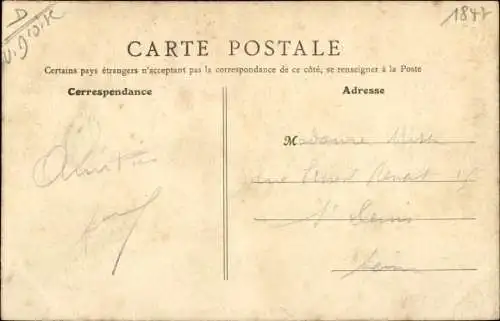 1847
D
CARTE POSTALE
Certains pays étrangers n'acceptant pas la correspondance de ce côté, se renseigner à la Poste
Correspondance
Adresse
Madame
rue Ernest Renan 15
St Denis
Seine